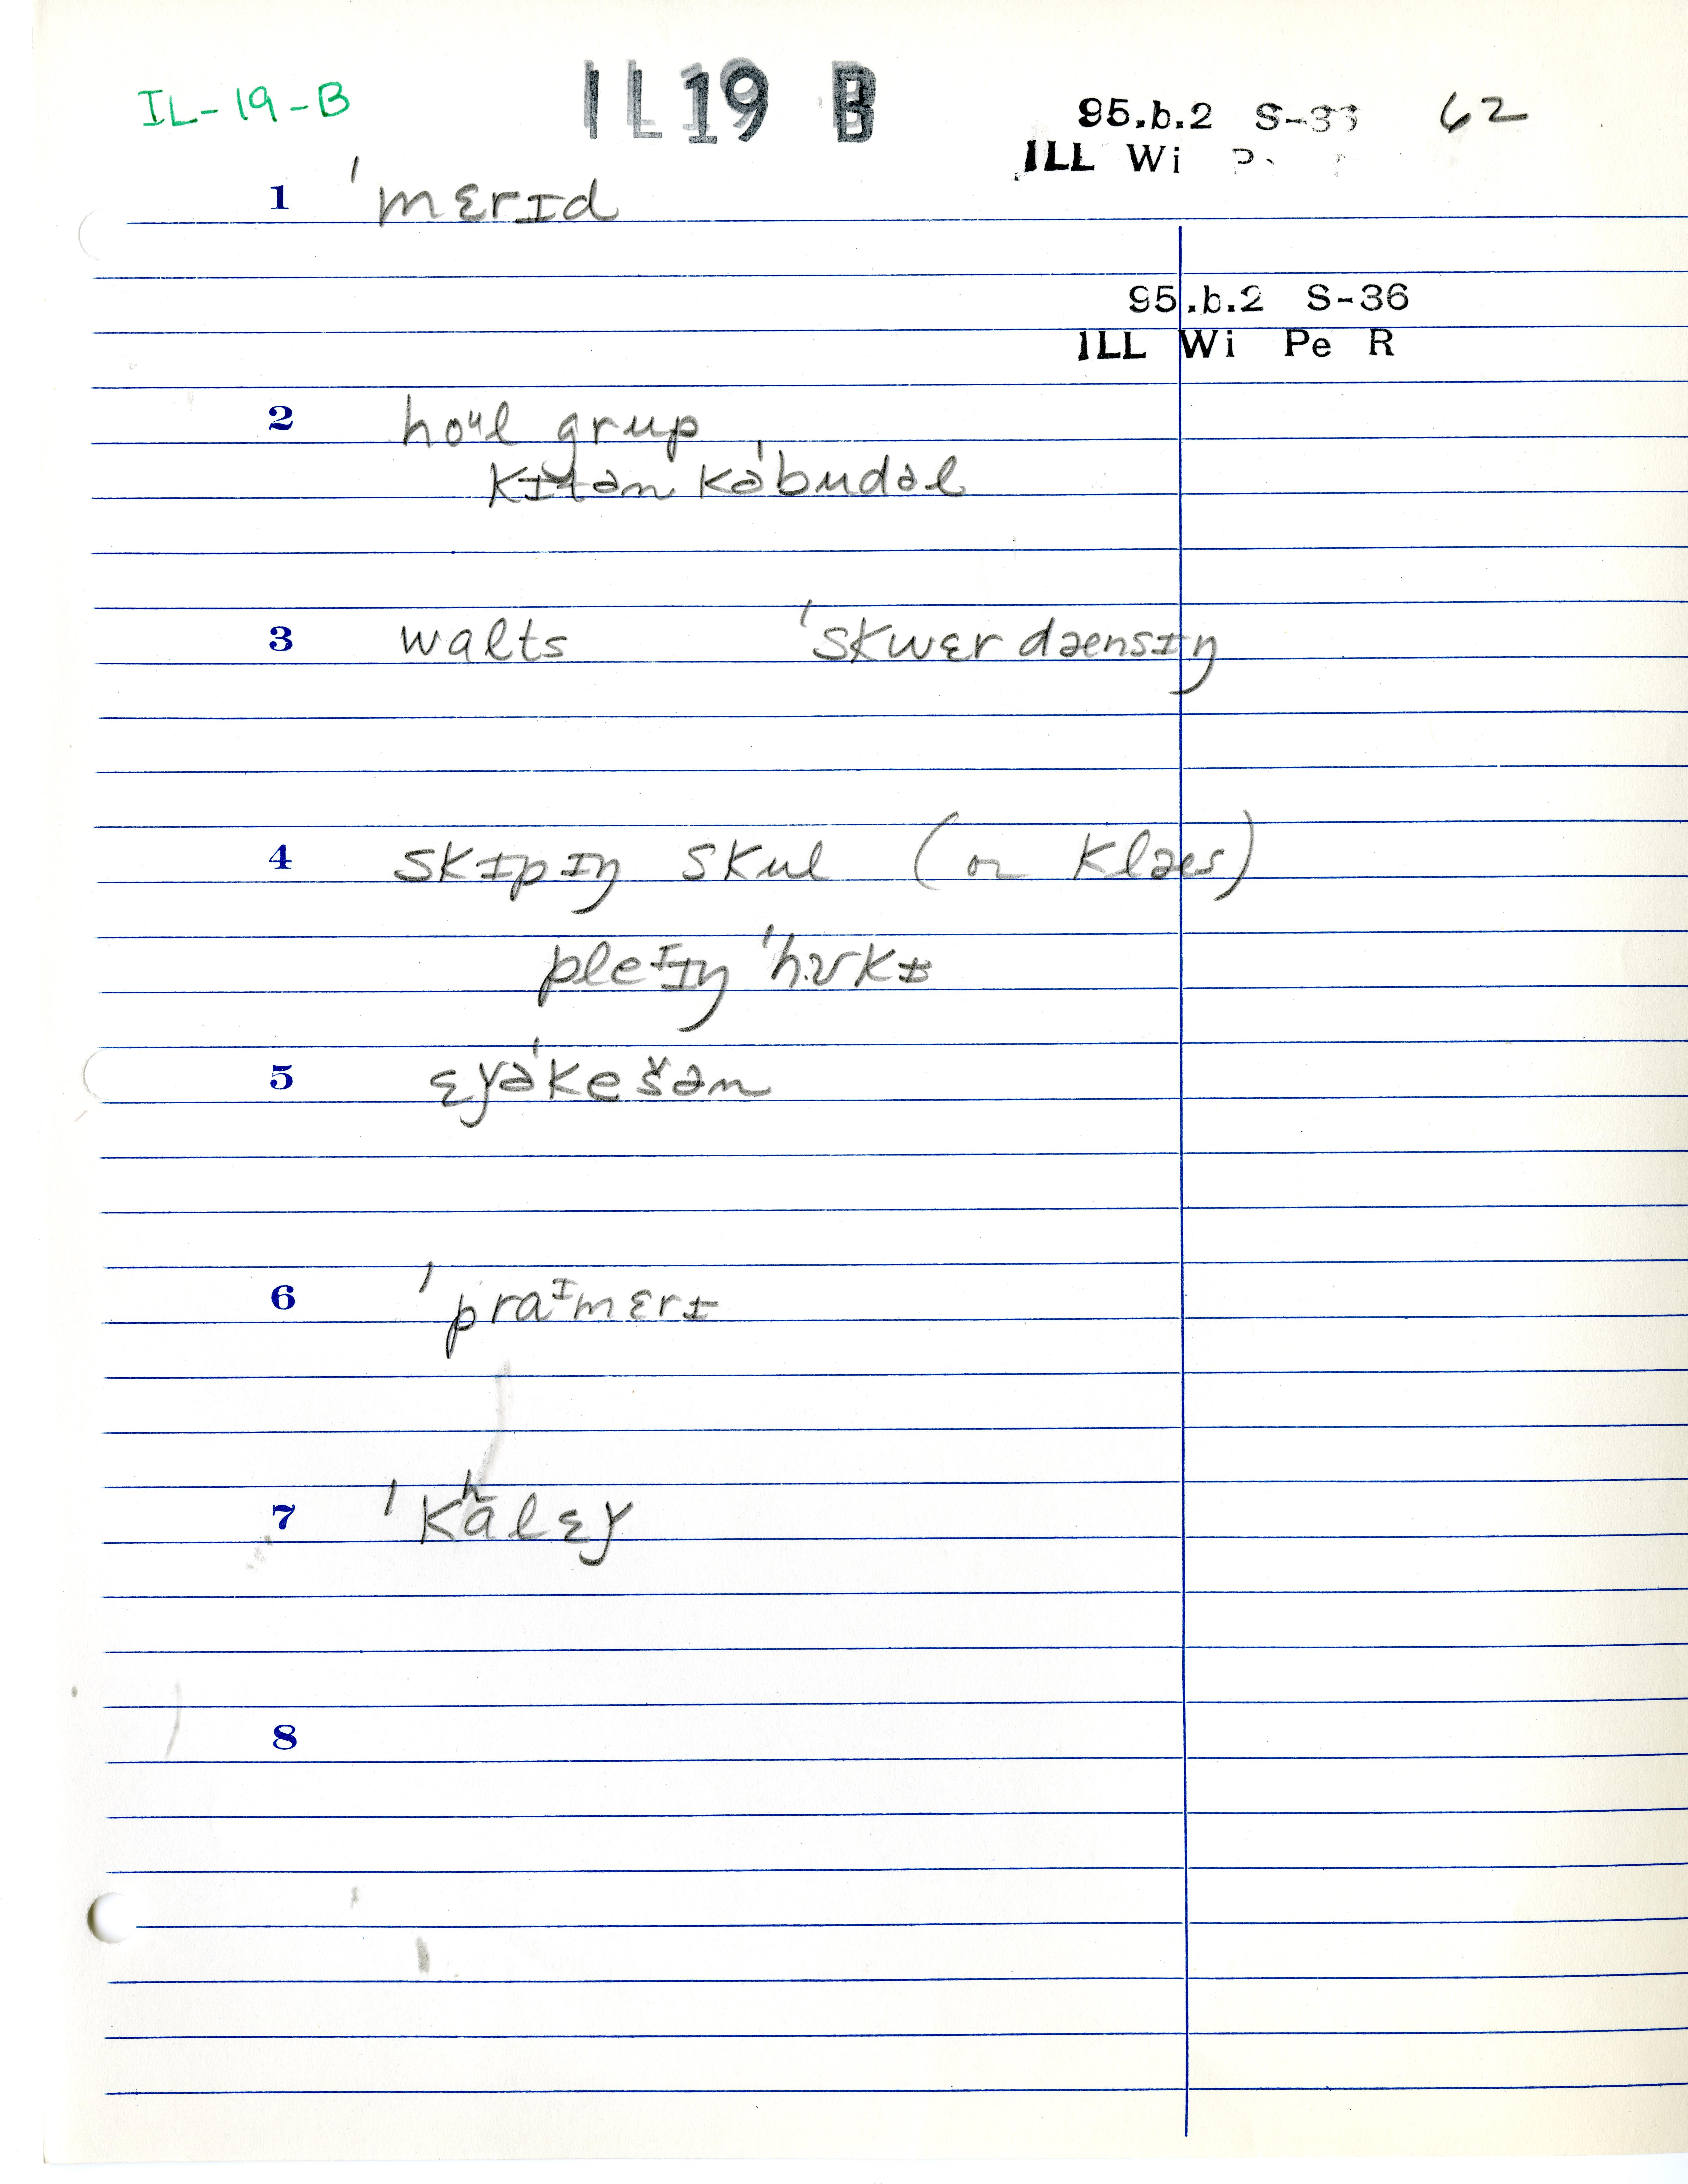 IL-19-B IL19 B 95.b.2 S-33 62
ILL Wi
1 ˈmɛrɪd
95.b.2 S-36
ILL Wi Pe R
2 hoᵘl grup
kɪtən kəˈbudəl
3 walts ˈskwɛr dænsɪŋ
4 skɪpɪŋ skul (or klæs)
pleᴵɪŋ ˈhʊkɪ
5 ɛɣəˈkešən
6 ˈpraᴵmɛrɪ
7 ˈkʰalɛɣ
8